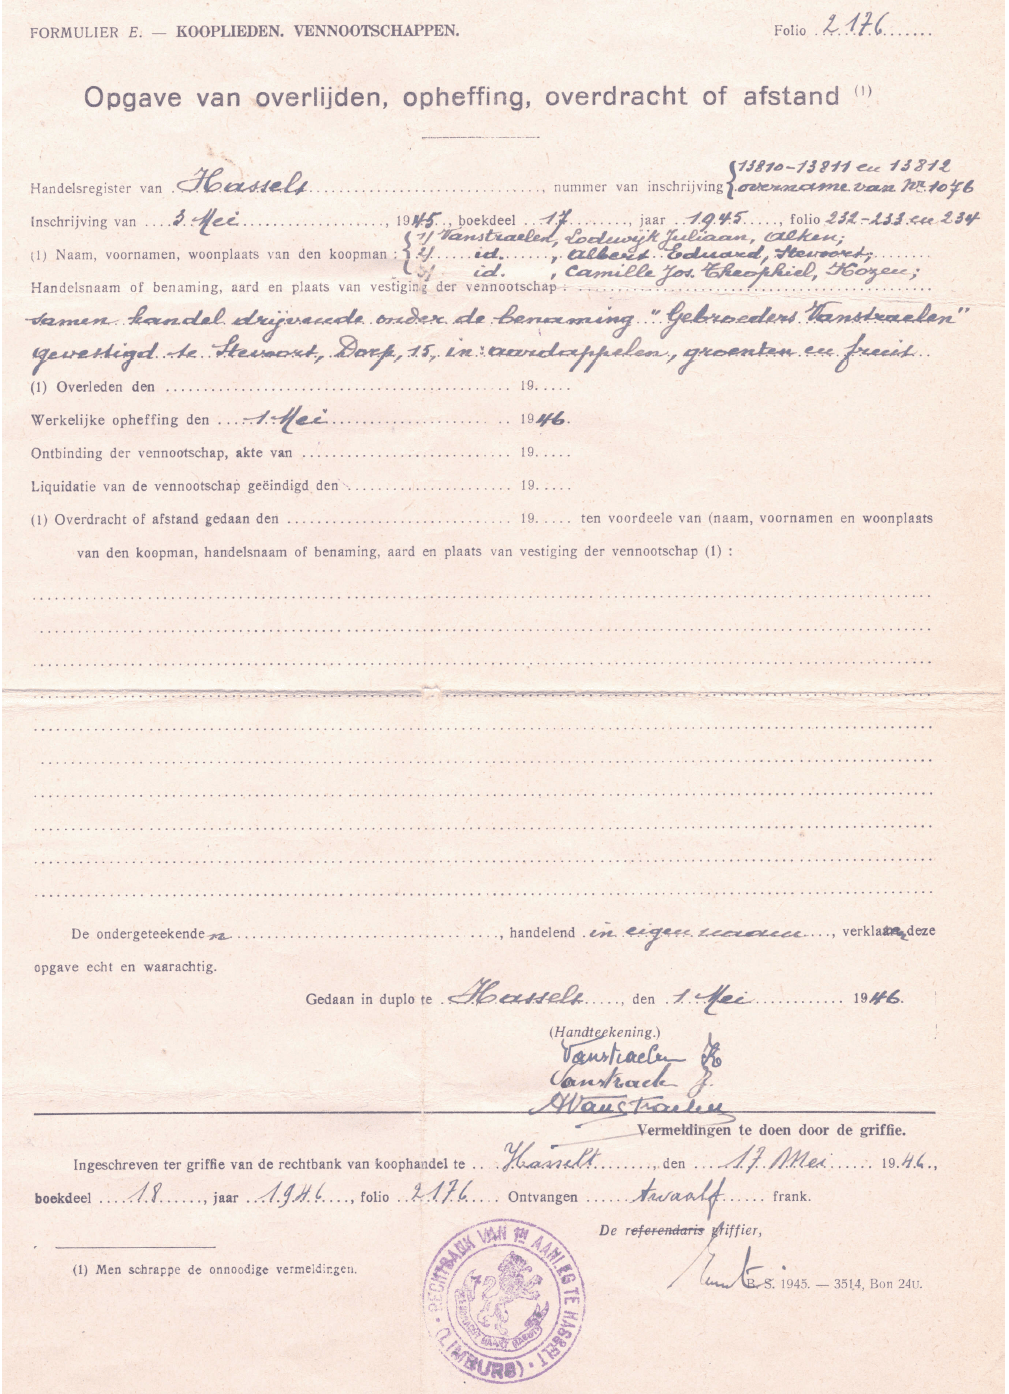 FORMULIER E. — KOOPLIEDEN. VENNOOTSCHAPPEN. Folio 2176
Opgave van overlijden, opheffing, overdracht of afstand (1)
13810-13811 en 13812
Handelsregister van Hasselt, nummer van inschrijving overname van Nr 1076
Inschrijving van 3 Mei, 1945, boekdeel 17, jaar 1945, folio 232-233 en 234
1/ Vanstraelen, Lodewijk Juliaan, Alken;
(1) Naam, voornamen, woonplaats van den koopman : 2/ id. , Albert Eduard, Stevoort;
3/ id. , Camille Jos. Theophiel, Kozen;
Handelsnaam of benaming, aard en plaats van vestiging der vennootschap :
samen handel drijvende onder de benaming "Gebroeders Vanstraelen"
gevestigd te Stevoort, Dorp, 15, in: aardappelen, groenten en fruit
(1) Overleden den 19
Werkelijke opheffing den 1 Mei 1946.
Ontbinding der vennootschap, akte van 19
Liquidatie van de vennootschap geëindigd den 19
(1) Overdracht of afstand gedaan den 19 ten voordeele van (naam, voornamen en woonplaats
van den koopman, handelsnaam of benaming, aard en plaats van vestiging der vennootschap (1) :
De ondergeteekenden, handelend in eigen naam, verklaren deze
opgave echt en waarachtig.
Gedaan in duplo te Hasselt, den 1 Mei 1946.
(Handteekening.)
Vanstraelen K
Vanstraelen J.
A Vanstraelen
Vermeldingen te doen door de griffie.
Ingeschreven ter griffie van de rechtbank van koophandel te Hasselt, den 17 Mei 1946,
boekdeel 18, jaar 1946, folio 2176 Ontvangen twaalf frank.
De referendaris griffier,
(1) Men schrappe de onnoodige vermeldingen.
B. S. 1945. — 3514, Bon 240.
RECHTBANK VAN 1N AANLEG TE HASSELT
(LIMBURG)